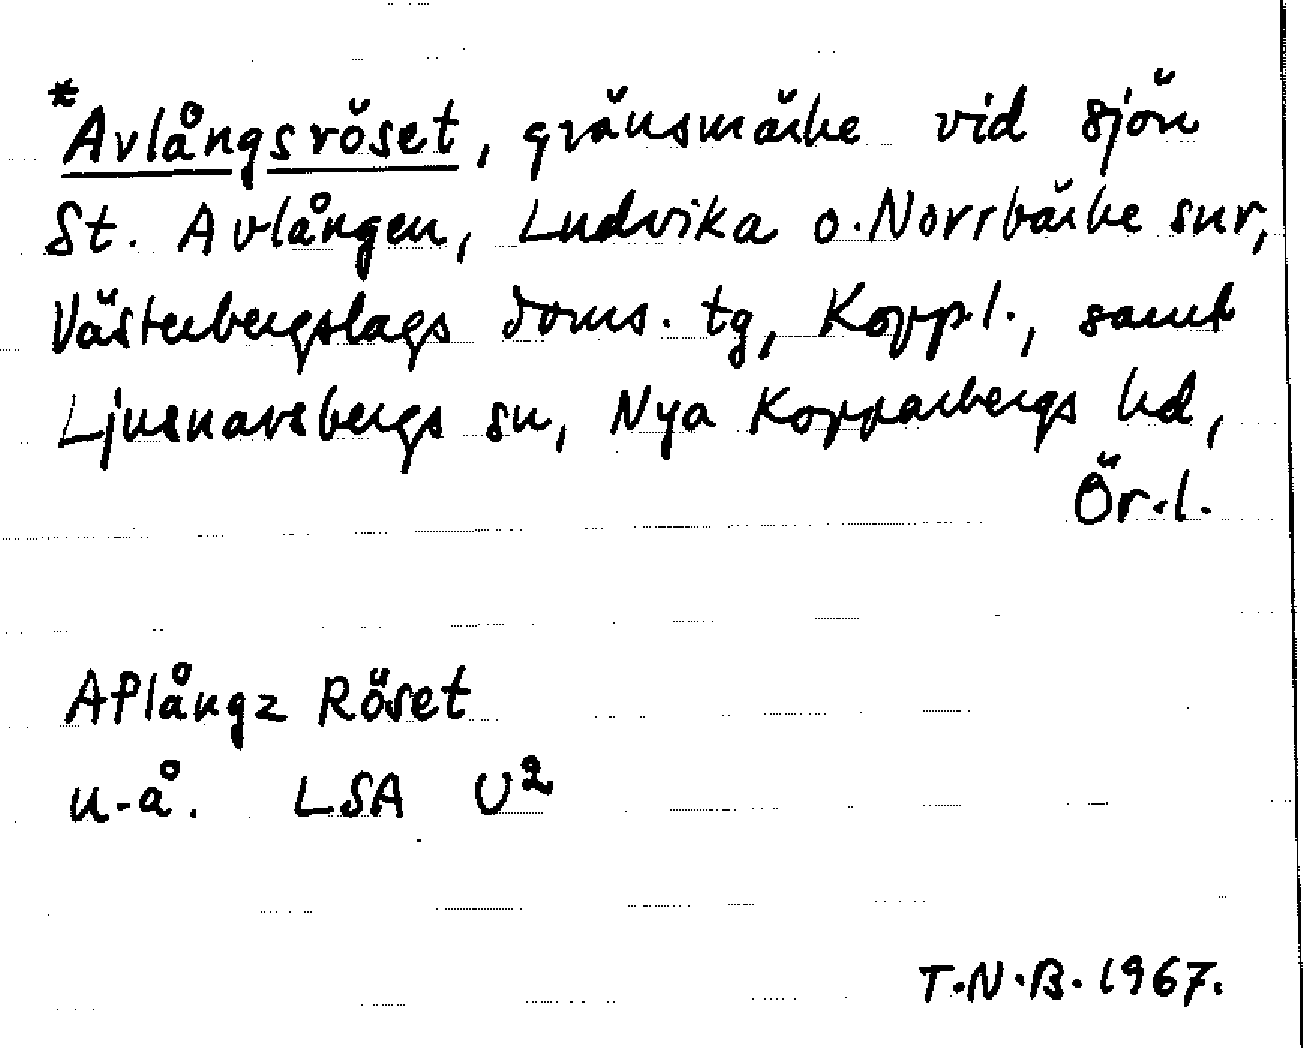 *Avlångsröset, gränsmärke vid sjön
St. Avlången, Ludvika o. Norrbärke snr,
Västerbergslags doms. tg, Koppl., samt
Ljusnarsbergs sn, Nya Kopparbergs hd,
Ör.l.
Aflångz Röset
u.å. LSA U²
T.N.B. 1967.